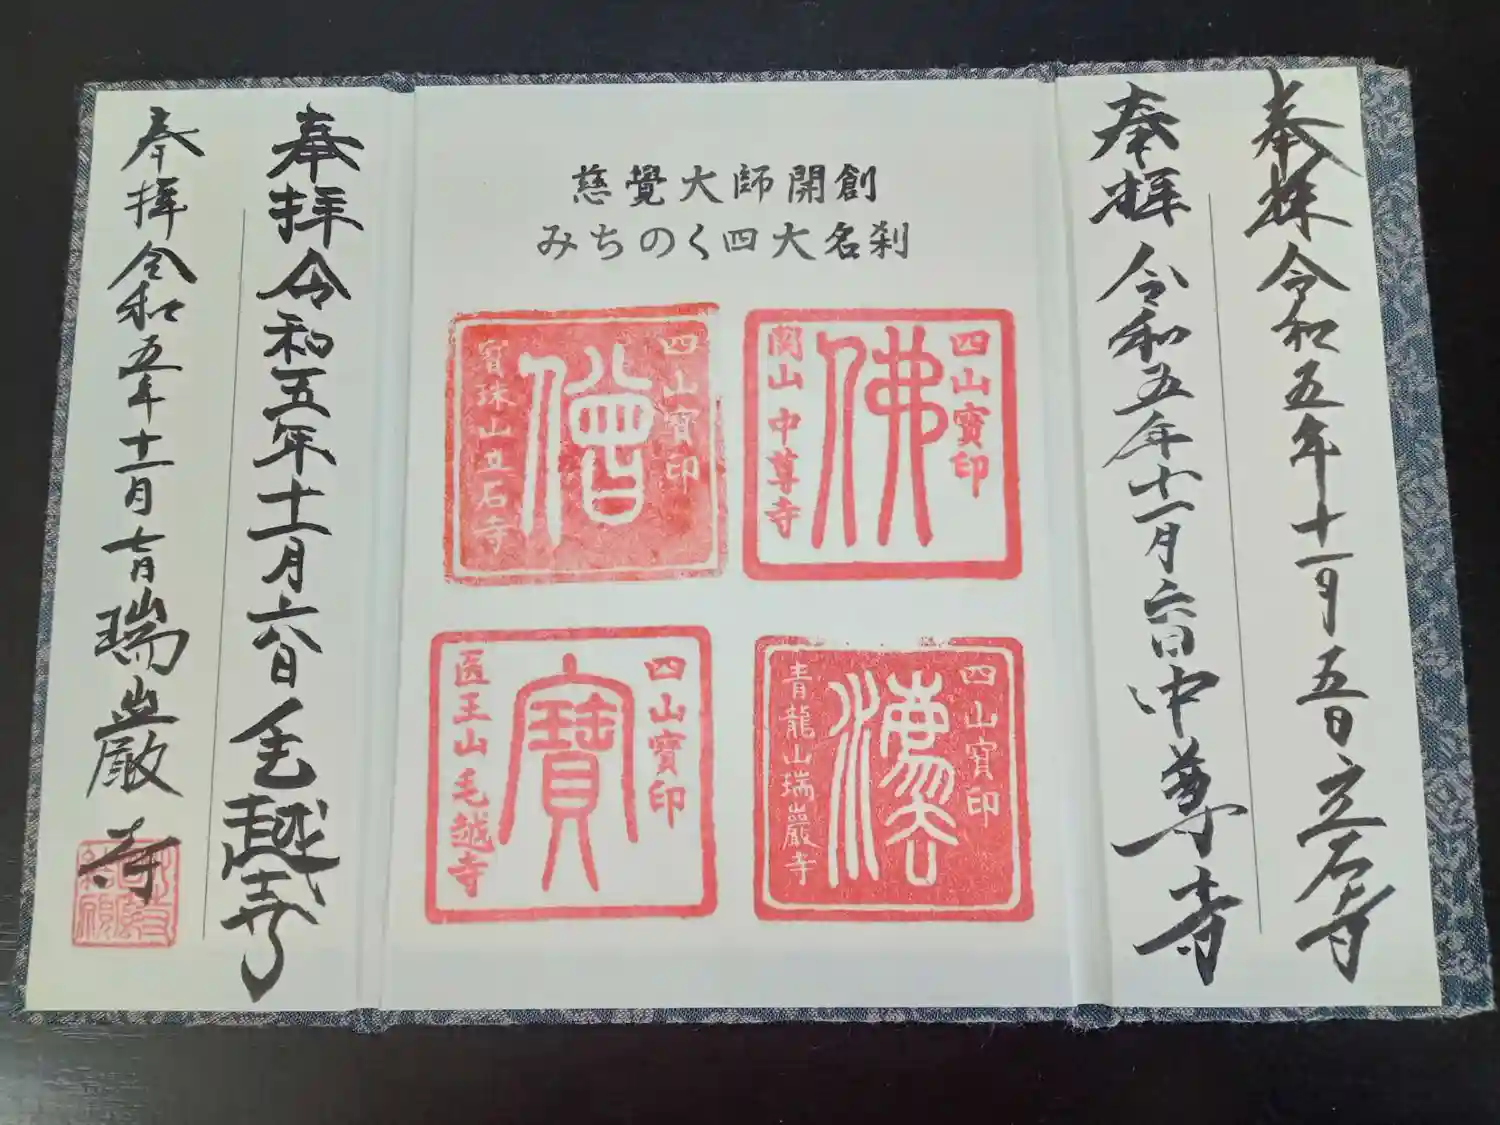 奉拝 令和五年十一月五日 立石寺
奉拝 令和五年十一月六日 中尊寺
慈覺大師開創
みちのく四大名刹
四山寶印
佛
関山 中尊寺
四山寶印
僧
寳珠山立石寺
四山寳印
青龍山瑞巖寺
四山寶印
寶
医王山毛越寺
奉拝 令和五年十一月六日 毛越寺
奉拝 令和五年十一月七日 瑞巌寺